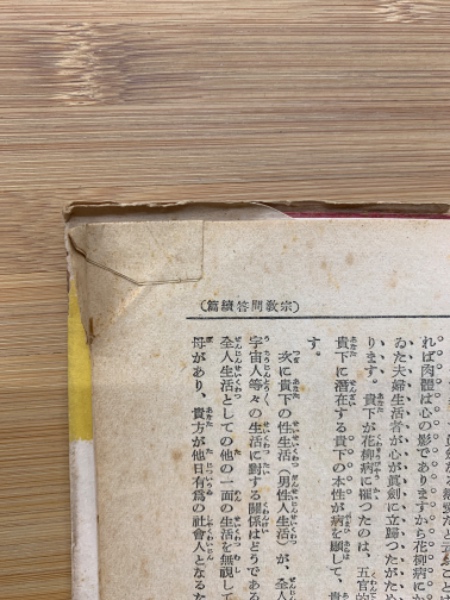 (宗敎問答續篇)
れば肉體は心の影でありますから花柳病に
ゐた夫婦生活者が心が眞劍に立歸つたがため
ります。貴下が花柳病に罹つたのは、五官的
貴下に潜在する貴下の本性が病を願して、貴
す。
次に貴下の性生活(男性人生活)が、全人
宇宙人等々の生活に對する關係はどうである
全人生活としての他の一面の生活を無視して
母があり、貴方が他日有爲の社會人となるな